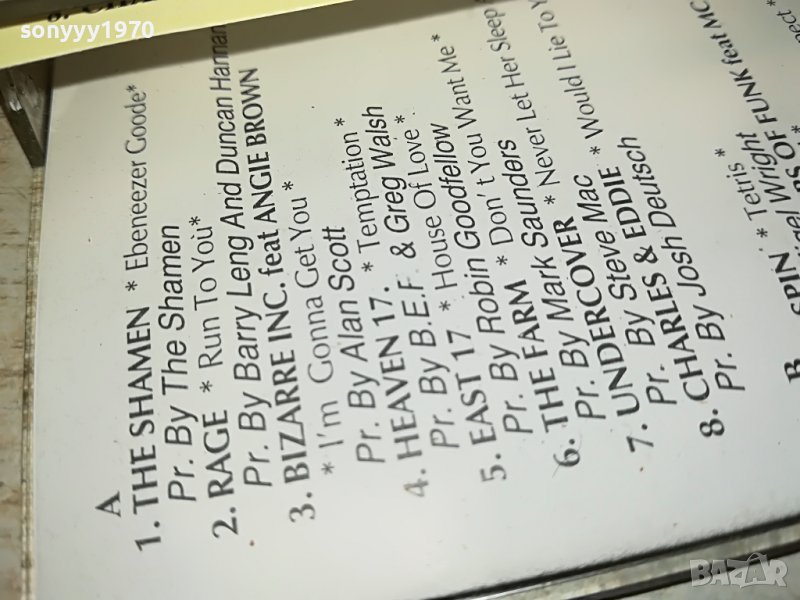 sonyyy1970
A
1. THE SHAMEN * Ebeneezer Goode*
Pr. By The Shamen
2. RAGE * Run To You*
Pr. By Barry Leng And Duncan Hannan
3. BIZARRE INC. feat ANGIE BROWN
* I'm Gonna Get You *
Pr. By Alan Scott
4. HEAVEN 17. * Temptation *
Pr. By B.E.F. & Greg Walsh
5. EAST 17 * House Of Love *
Pr. By Robin Goodfellow
6. THE FARM * Don't You Want Me *
Pr. By Mark Saunders
7. UNDERCOVER * Never Let Her Sleep
Pr. By Steve Mac
8. CHARLES & EDDIE * Would I Lie To
Pr. By Josh Deutsch
B
SPIN * Tetris *
Wright
OF FUNK feat MC
BAZAR